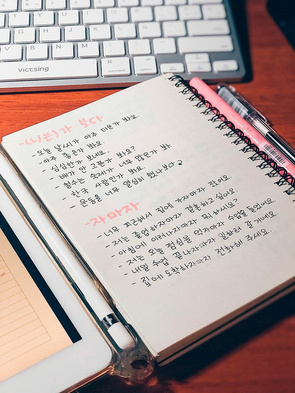 viccsing
-(나/은)가 보다
- 오늘 날씨가 아주 더운가 봐요.
- 아주 좋은가 봐요.
- 심심한가 보네요.
- 배가 안 고픈가 봐요?
- 철수는 숙제가 너무 많은가 봐
- 한국 사람인가 봐요.
- 운동을 너무 열심히 했나보다
-자마자
- 너무 피곤해서 집에 가자마자 잤어요
- 저는 졸업하자마자 결혼하고 싶어요
- 아침에 일어나자마자 뭐 하세요?
- 저는 오늘 점심을 먹자마자 수업을 들었어요
- 내일 수업 끝나자마자 일하러 갈게요
- 집에 도착하자마자 전화해 주세요.